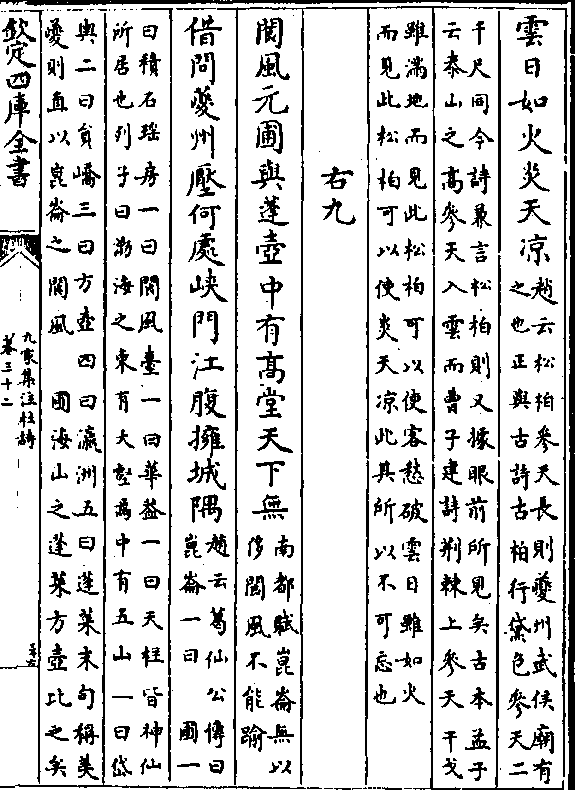 雲日如火炎天凉
趙云松柏參天長則夔州武侯廟有
之也正與古詩古柏行黛色參天二
千尺同今詩兼言松柏則又據眼前所見矣古本孟子
云泰山之髙參天入雲而曹子建詩荆棘上參天干戈
雖滿地而見此松柏可以使客愁破雲日雖如火
而見此松柏可以使炎天凉此其所以不可忘也
右九
閬風元圃與蓬壺中有髙堂天下無
南都賦崑崙無以
侈閬風不能踰
借問夔州壓何處峽門江腹擁城隅
趙云葛仙公傳曰
崑崙一曰 圃一
曰積石瑶房一曰閬風臺一曰華葢一曰天柱皆神仙
所居也列子曰渤海之東有大壑焉中有五山一曰岱
輿二曰貟嶠三曰方壺四曰瀛洲五曰蓬萊末句稱美
夔則直以崑崙之閬風 圃海山之蓬萊方壺比之矣
欽定四庫全書
九家集注杜詩
卷三十二